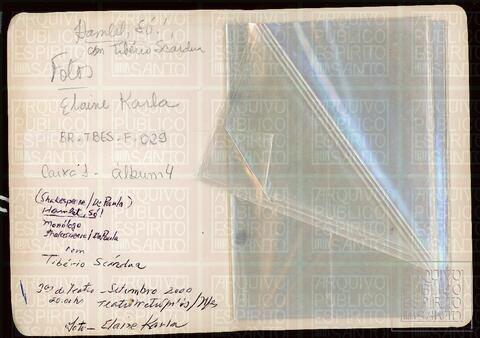 Hamlet, Só!
con Tibério Scárdua
Fotos
Elaine Karla
BR-TBES-F-029
Caixa 1 - álbum 4
(Shakespeare/De Paula)
Hamlet, Só!
monólogo
Shakespeare/DePaula
com
Tibério Scárdua
de teatro - Setembro 2000
Teatro
Foto - Elaine Karla
ARQUIVO
PÚBLICO
ESPÍRITO
SANTO